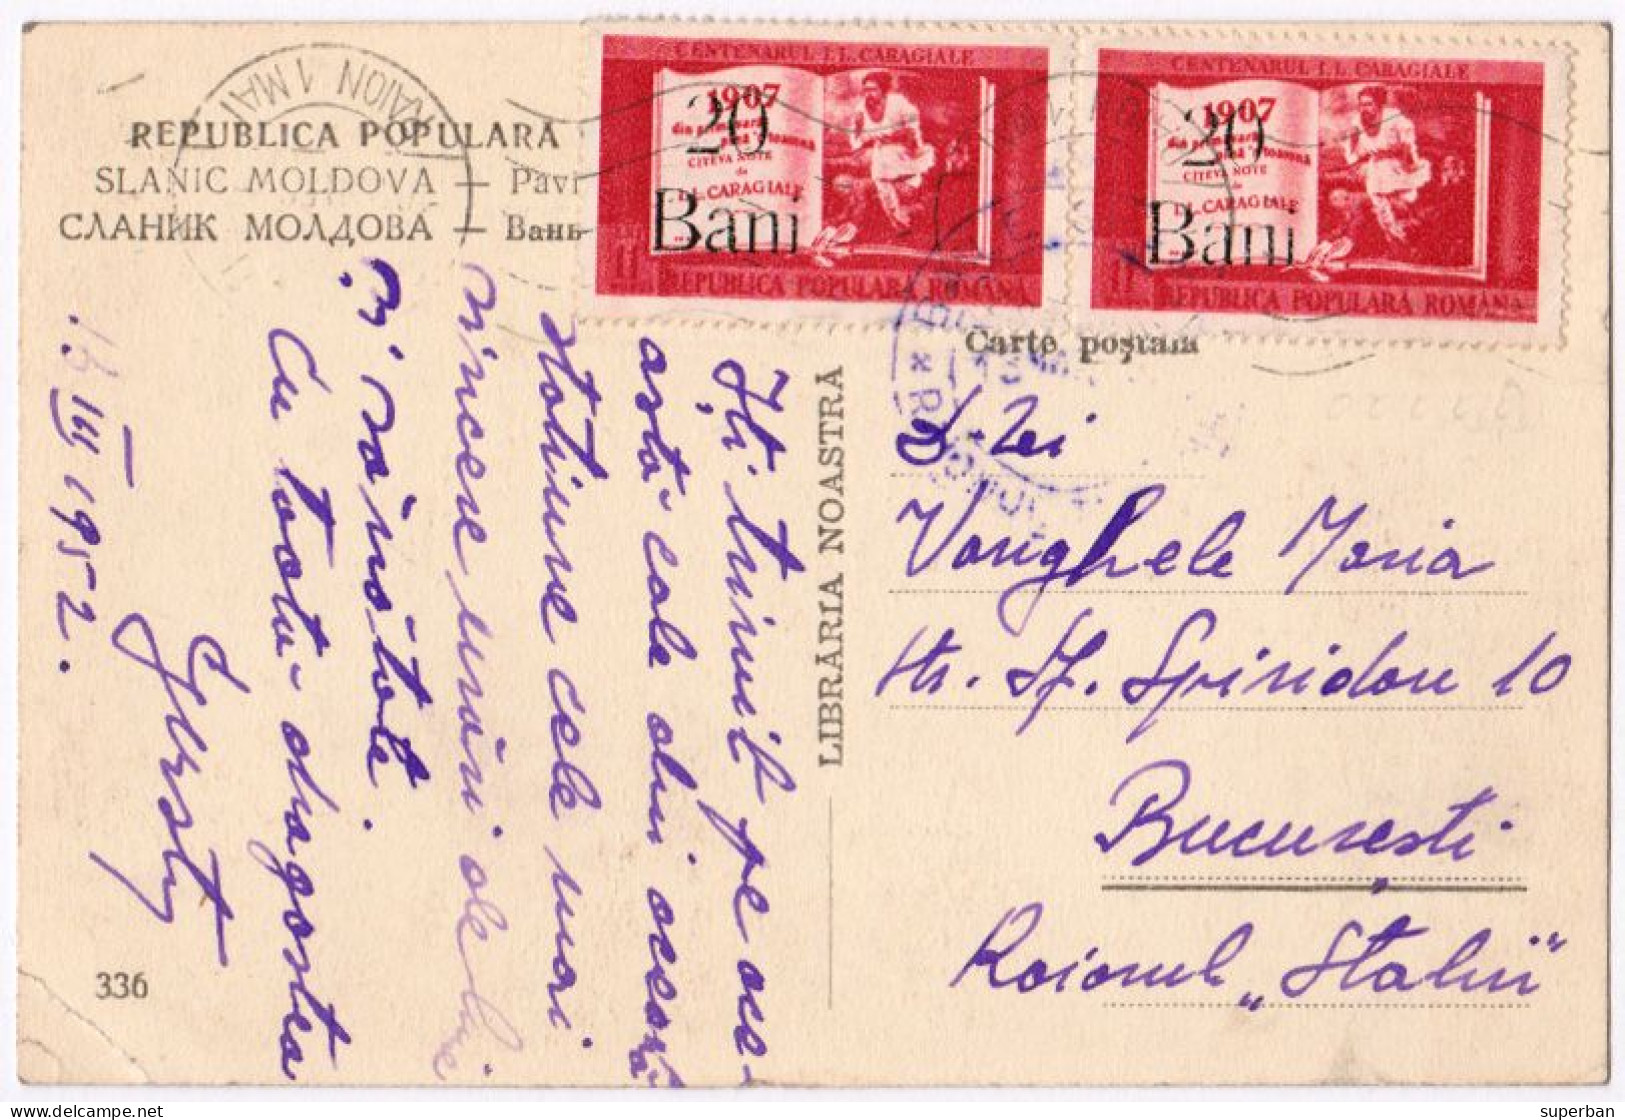 REPUBLICA POPULARĂ
SLANIC MOLDOVA — Pavi
СЛАНИК МОЛДОВА — Вань
RAION 1 MAI
CENTENARUL I.L. CARAGIALE
1907
din primavara
pînă 'n toamnă
CÎTEVA NOTE
de
I.L. CARAGIALE
20
Bani
11 L
REPUBLICA POPULARA ROMÂNA
CENTENARUL I.L. CARAGIALE
1907
din primavara
pînă 'n toamnă
CÎTEVA NOTE
de
I.L. CARAGIALE
20
Bani
11 L
REPUBLICA POPULARA ROMÂNA
Carte poştala
Îţi trimit pe acea-
astă cale din această
staţiune cele mai
sincere urări de bine
şi sănătate.
Cu toată dragostea
III 1952.
LIBRĂRIA NOASTRĂ
D-Zei
Vanghele Maria
str. Sf. Spiridon 10
Bucureşti
Raionul „Stalin"
336
www.delcampe.net
superban